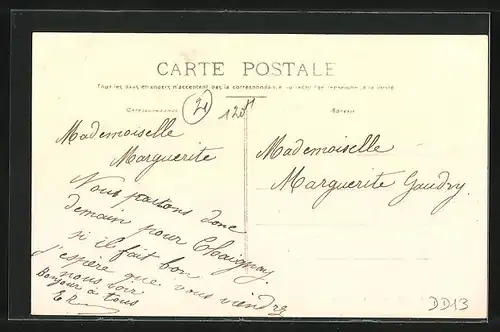 CARTE POSTALE
Tous les pays étrangers n'acceptent pas la correspondance au recto
Correspondance
Adresse
21
Mademoiselle
Marguerite
Nous partons donc
demain pour
si il fait bon
j'espère que vous viendrez
nous voir
Bonjour à tous
E R
Mademoiselle
Marguerite Gaudry.
DD13